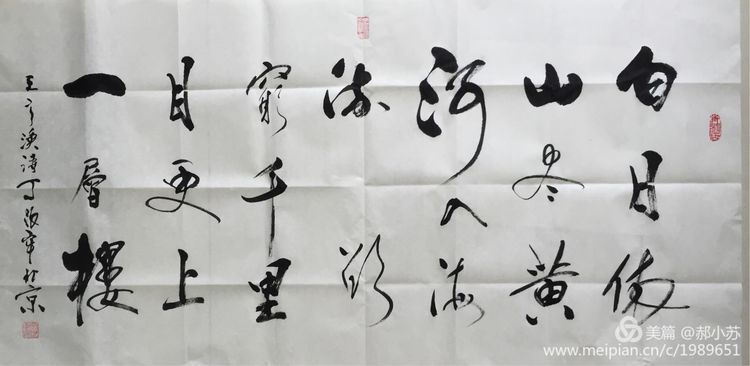 白日依
山尽黄
河入海
流欲
窮千里
目更上
一層樓
王之涣诗
美篇 @郝小苏
www.meipian.cn/c/1989651